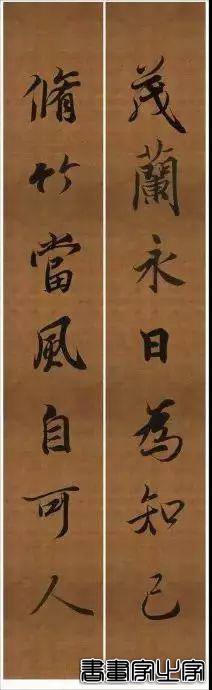 茂蘭永日為知己
脩竹當風自可人
書畫家之字